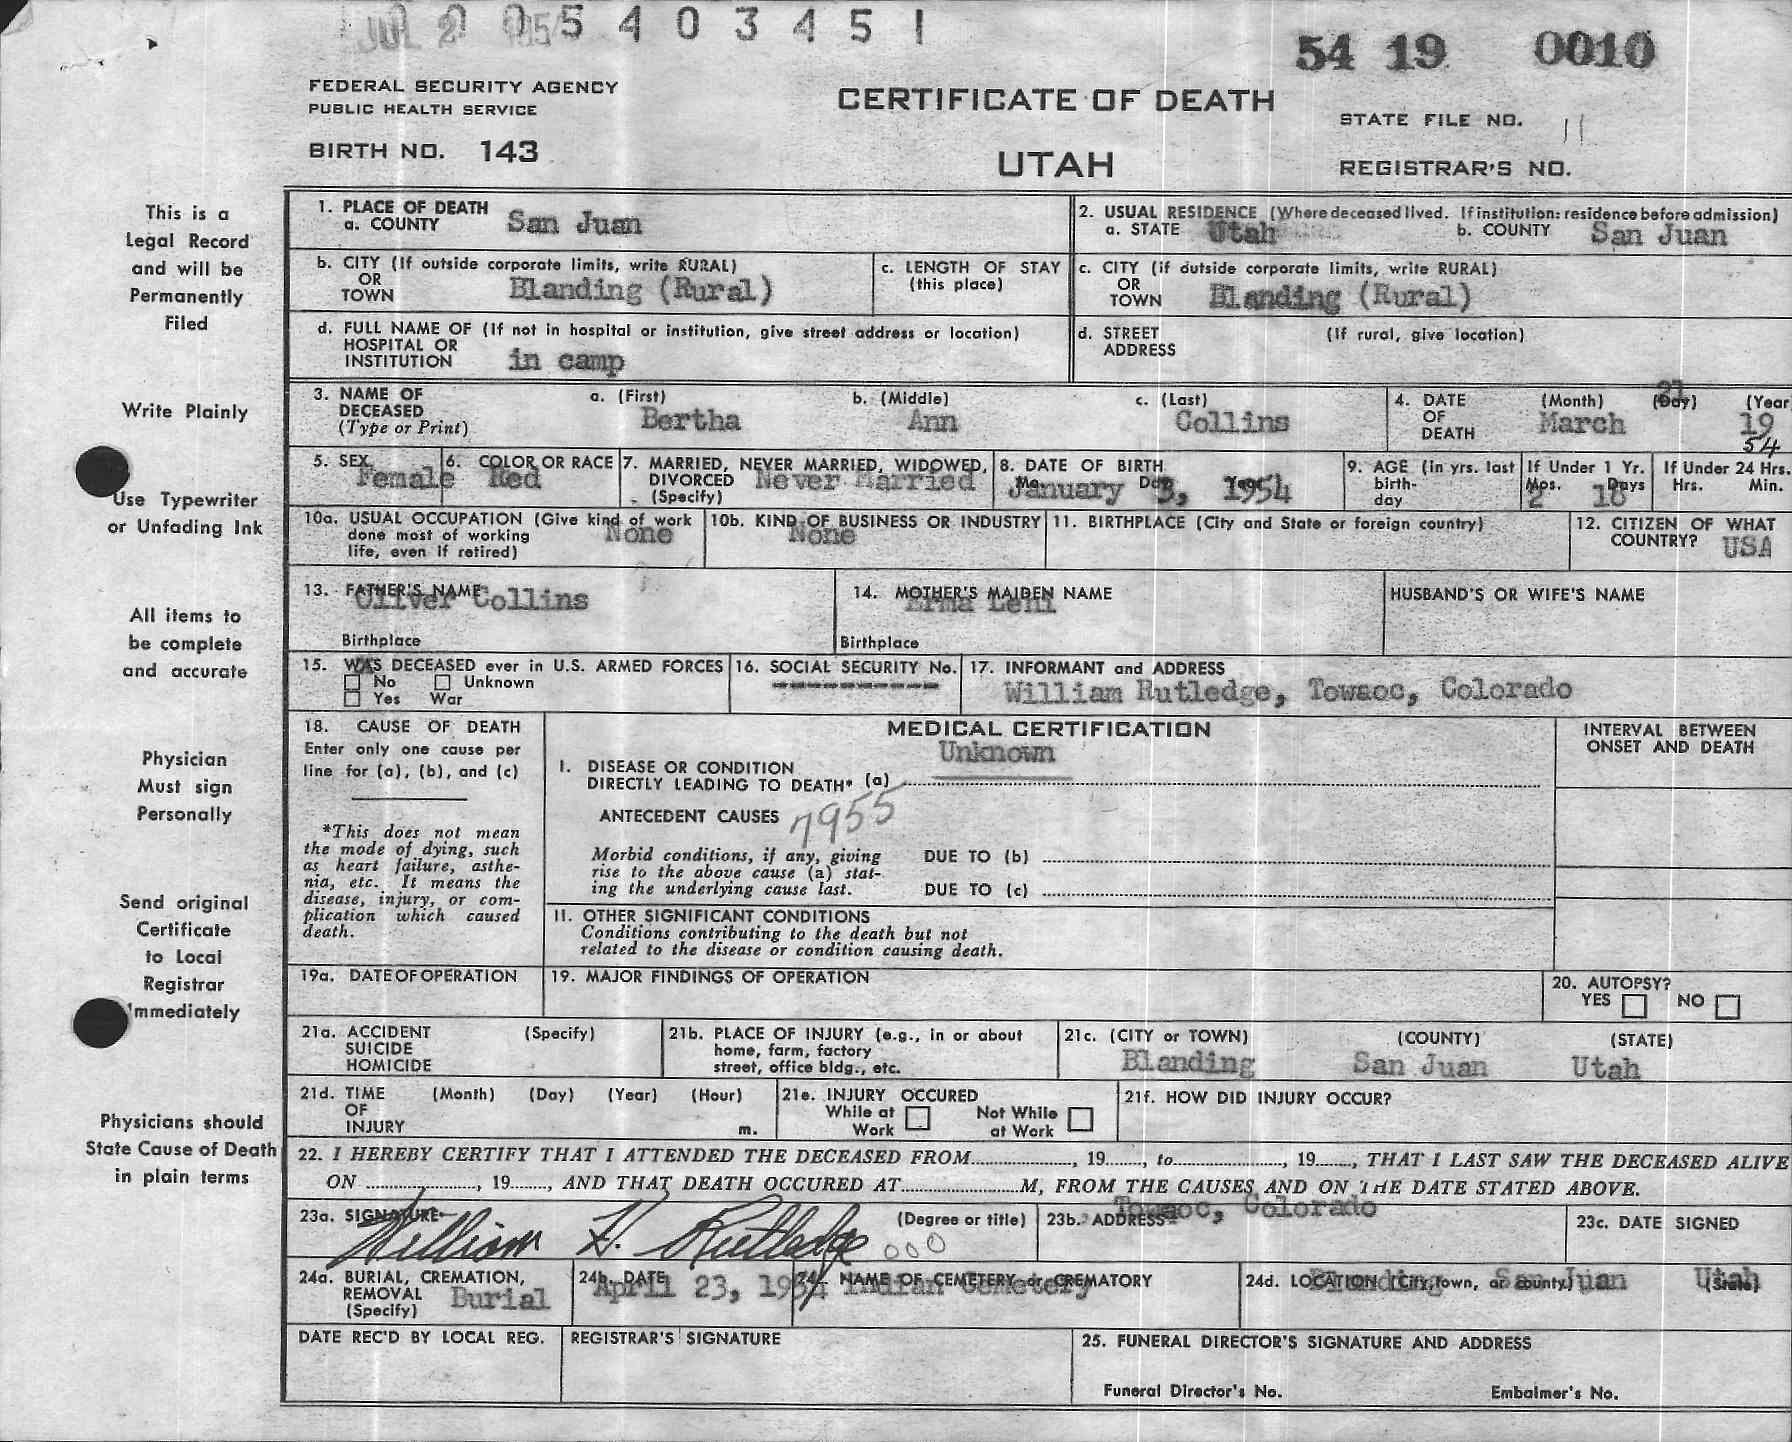 JUL 2
5 4 0 3 4 5 1
54 19 0010
FEDERAL SECURITY AGENCY
PUBLIC HEALTH SERVICE
BIRTH NO. 143
CERTIFICATE OF DEATH
UTAH
STATE FILE NO. 11
REGISTRAR'S NO.
This is a
Legal Record
and will be
Permanently
Filed
Write Plainly
Use Typewriter
or Unfading Ink
All items to
be complete
and accurate
Physician
Must sign
Personally
Send original
Certificate
to Local
Registrar
Immediately
Physicians should
State Cause of Death
in plain terms
1. PLACE OF DEATH
a. COUNTY San Juan
2. USUAL RESIDENCE (Where deceased lived. If institution: residence before admission)
a. STATE Utah b. COUNTY San Juan
b. CITY (If outside corporate limits, write RURAL)
OR
TOWN Blanding (Rural)
c. LENGTH OF STAY
(this place)
c. CITY (if outside corporate limits, write RURAL)
OR
TOWN Blanding (Rural)
d. FULL NAME OF (If not in hospital or institution, give street address or location)
HOSPITAL OR
INSTITUTION in camp
d. STREET (If rural, give location)
ADDRESS
3. NAME OF a. (First) b. (Middle) c. (Last)
DECEASED Bertha Ann Collins
(Type or Print)
4. DATE (Month) (Day) (Year
OF March 21 19
DEATH 54
5. SEX Female
6. COLOR OR RACE Red
7. MARRIED, NEVER MARRIED, WIDOWED,
DIVORCED Never Married
(Specify)
8. DATE OF BIRTH
Mo. Day Year
January 3, 1954
9. AGE (in yrs. last
birth-
day
If Under 1 Yr.
Mos. Days
2 18
If Under 24 Hrs.
Hrs. Min.
10a. USUAL OCCUPATION (Give kind of work
done most of working None
life, even if retired)
10b. KIND OF BUSINESS OR INDUSTRY
None
11. BIRTHPLACE (City and State or foreign country)
12. CITIZEN OF WHAT
COUNTRY? USA
13. FATHER'S NAME
Oliver Collins
Birthplace
14. MOTHER'S MAIDEN NAME
Erma
Birthplace
HUSBAND'S OR WIFE'S NAME
15. WAS DECEASED ever in U.S. ARMED FORCES
No Unknown
Yes War
16. SOCIAL SECURITY No.
-----------
17. INFORMANT and ADDRESS
William Rutledge, Towaoc, Colorado
18. CAUSE OF DEATH
Enter only one cause per
line for (a), (b), and (c)
*This does not mean
the mode of dying, such
as heart failure, asthe-
nia, etc. It means the
disease, injury, or com-
plication which caused
death.
MEDICAL CERTIFICATION
Unknown
I. DISEASE OR CONDITION
DIRECTLY LEADING TO DEATH* (a)
ANTECEDENT CAUSES 7955
Morbid conditions, if any, giving DUE TO (b)
rise to the above cause (a) stat-
ing the underlying cause last. DUE TO (c)
INTERVAL BETWEEN
ONSET AND DEATH
II. OTHER SIGNIFICANT CONDITIONS
Conditions contributing to the death but not
related to the disease or condition causing death.
19a. DATE OF OPERATION
19. MAJOR FINDINGS OF OPERATION
20. AUTOPSY?
YES NO
21a. ACCIDENT (Specify)
SUICIDE
HOMICIDE
21b. PLACE OF INJURY (e.g., in or about
home, farm, factory
street, office bldg., etc.
21c. (CITY or TOWN) (COUNTY) (STATE)
Blanding San Juan Utah
21d. TIME (Month) (Day) (Year) (Hour)
OF
INJURY m.
21e. INJURY OCCURED
While at Not While
Work at Work
21f. HOW DID INJURY OCCUR?
22. I HEREBY CERTIFY THAT I ATTENDED THE DECEASED FROM................, 19......., to................, 19......., THAT I LAST SAW THE DECEASED ALIVE
ON ................, 19......., AND THAT DEATH OCCURED AT................M, FROM THE CAUSES AND ON THE DATE STATED ABOVE.
23a. SIGNATURE (Degree or title)
William H. Rutledge 000
23b. ADDRESS
Towaoc, Colorado
23c. DATE SIGNED
24a. BURIAL, CREMATION,
REMOVAL Burial
(Specify)
24b. DATE
April 23, 1954
24c. NAME OF CEMETERY or CREMATORY
Indian Cemetery
24d. LOCATION (City, town, or county) (State)
Blanding San Juan Utah
DATE REC'D BY LOCAL REG.
REGISTRAR'S SIGNATURE
25. FUNERAL DIRECTOR'S SIGNATURE AND ADDRESS
Funeral Director's No. Embalmer's No.